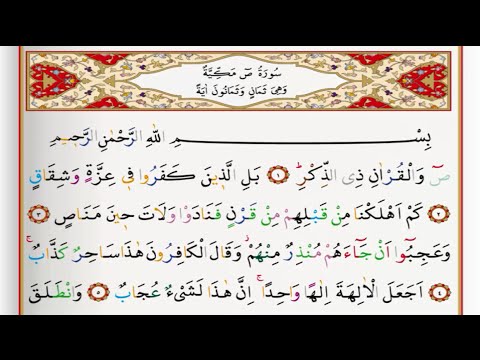 سُورَةُ صٓ مَكِّيَّةٌ
وَهِيَ ثَمَانٍ وَثَمَانُونَ اٰيَةً
بِسْمِ اللّٰهِ الرَّحْمٰنِ الرَّحٖيمِ
صٓ وَالْقُرْاٰنِ ذِي الذِّكْرِۜ ﴿١﴾ بَلِ الَّذٖينَ كَفَرُوا فٖي عِزَّةٍ وَشِقَاقٍ
﴿٢﴾ كَمْ اَهْلَكْنَا مِنْ قَبْلِهِمْ مِنْ قَرْنٍ فَنَادَوْا وَلَاتَ حٖينَ مَنَاصٍ ﴿٣﴾
وَعَجِبُٓوا اَنْ جَٓاءَهُمْ مُنْذِرٌ مِنْهُمْۘ وَقَالَ الْكَافِرُونَ هٰذَا سَاحِرٌ كَذَّابٌۚ
﴿٤﴾ اَجَعَلَ الْاٰلِهَةَ اِلٰهًا وَاحِدًاۚ اِنَّ هٰذَا لَشَيْءٌ عُجَابٌ ﴿٥﴾ وَانْطَلَقَ